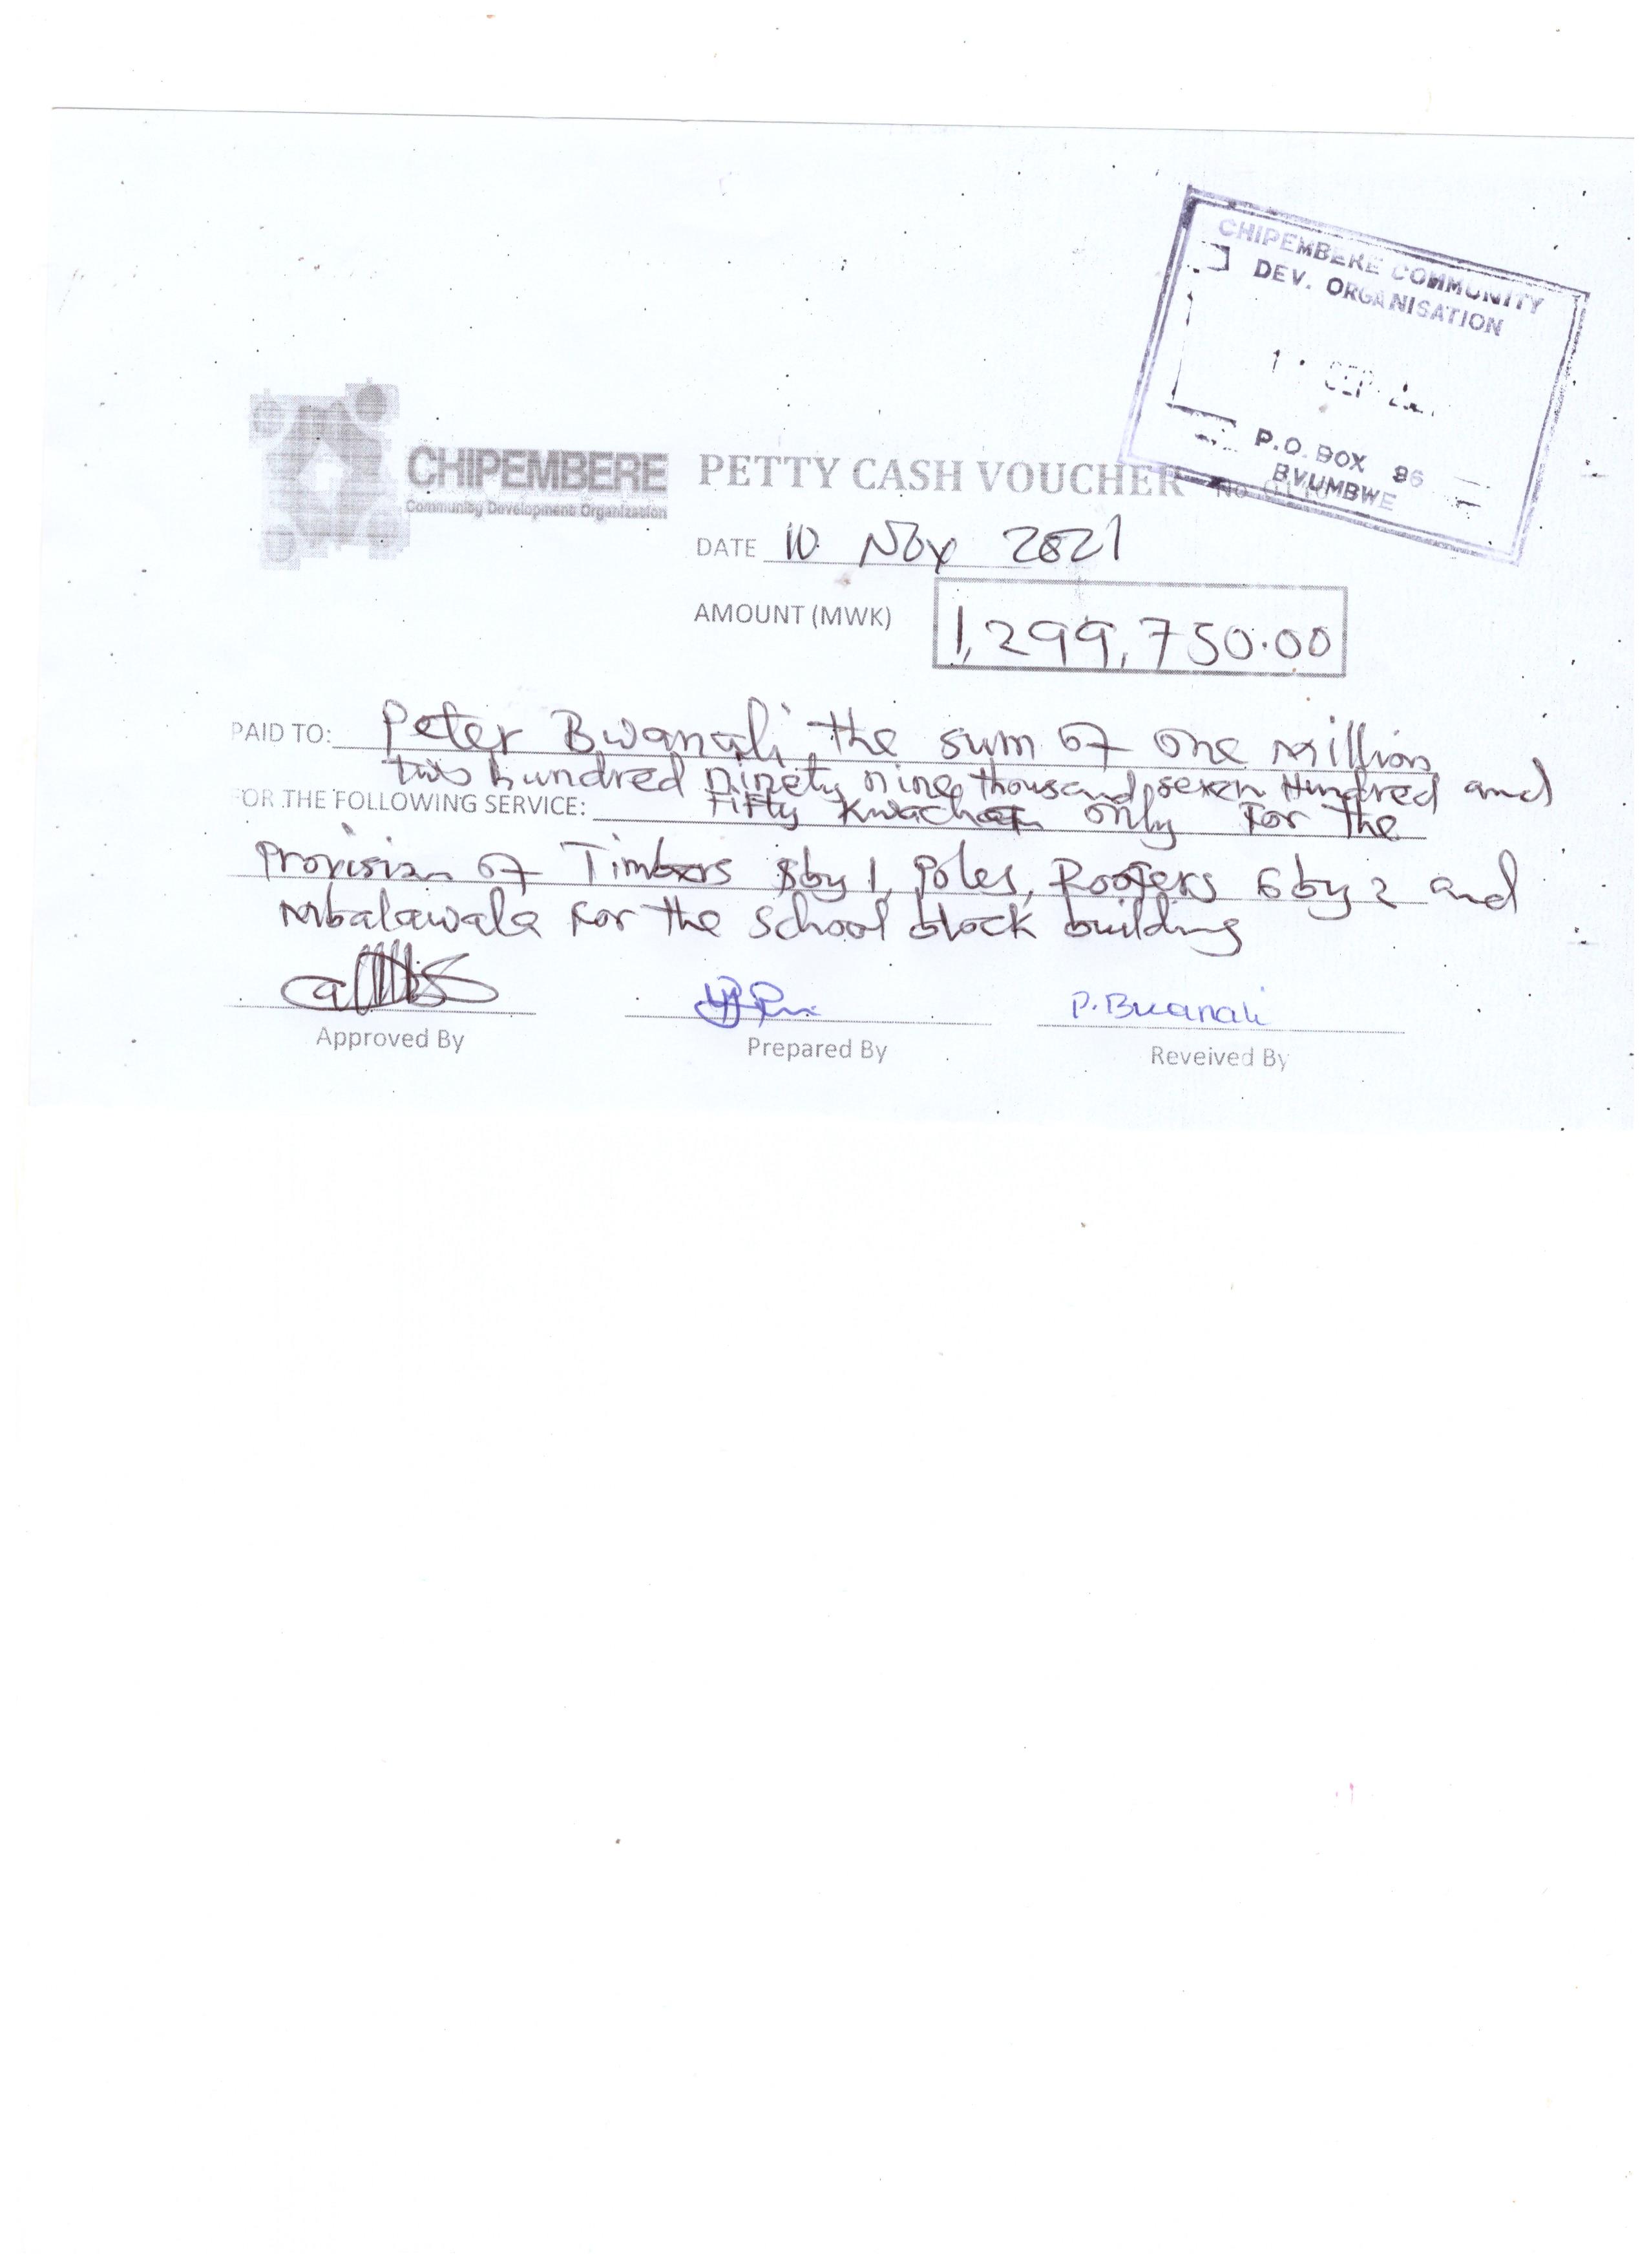 CHIPEMBERE COMMUNITY
DEV. ORGANISATION
SEP
P.O. BOX 86
BVUMBWE
CHIPEMBERE
Community Development Organization
PETTY CASH VOUCHER No
DATE 10 Nov 2021
AMOUNT (MWK) 1,299,750.00
PAID TO: Peter Bwanali the sum of one million
two hundred ninety nine thousand seven Hundred and
FOR THE FOLLOWING SERVICE: Fifty Kwacha only For the
provision of Timbers 8by 1, poles, Roofers 6 by 2 and
Mbalawala For the school block building
P. Bwanali
Approved By
Prepared By
Reveived By